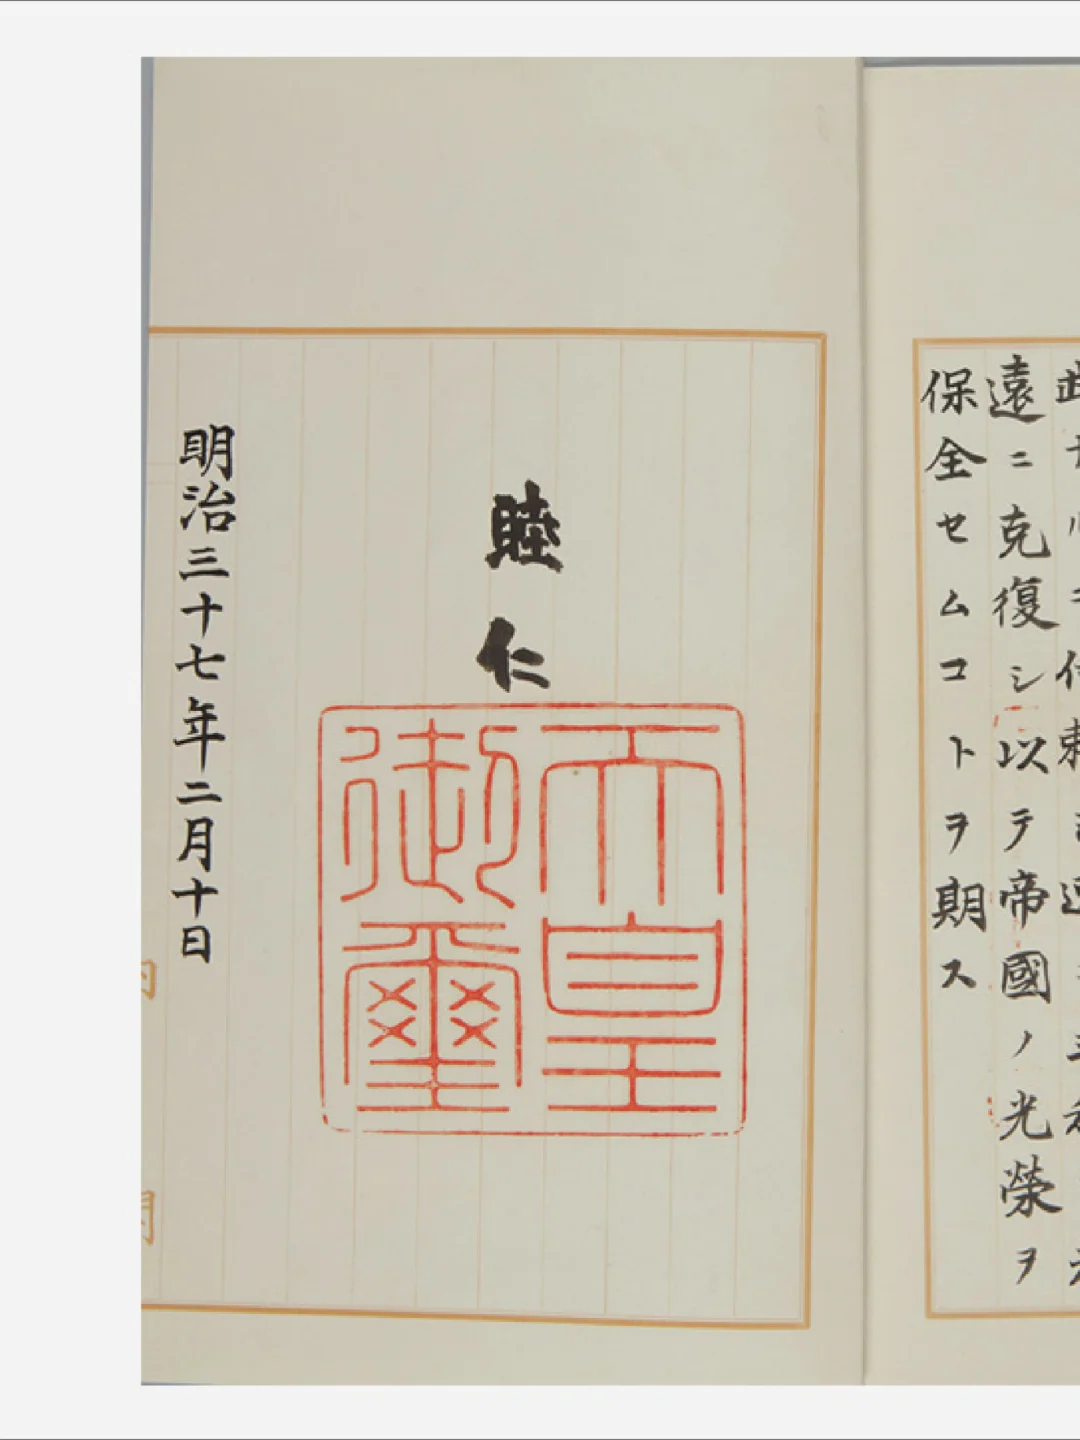 遠ニ克復シ以テ帝國ノ光榮ヲ
保全セムコトヲ期ス
睦仁
天皇
御璽
明治三十七年二月十日